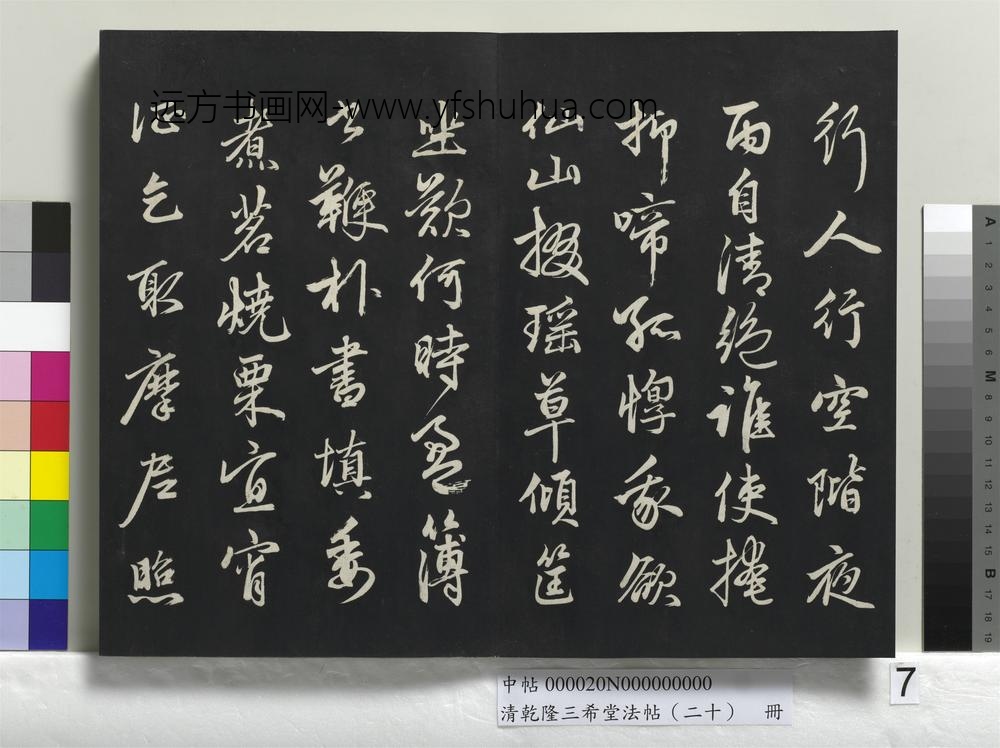 行人行空階夜
雨自清絕誰使掩
抑啼孤惸我欲
仙山掇瑶草傾筐
坐歎何時盈簿
書鞭朴書填委
煮茗燒栗宜宵
征乞取摩尼照
远方书画网-www.yfshuhua.com
中帖 000020N000000000
清乾隆三希堂法帖（二十） 冊
7
A
1
2
3
4
5
6
M
8
9
10
11
12
13
14
15
B
17
18
19